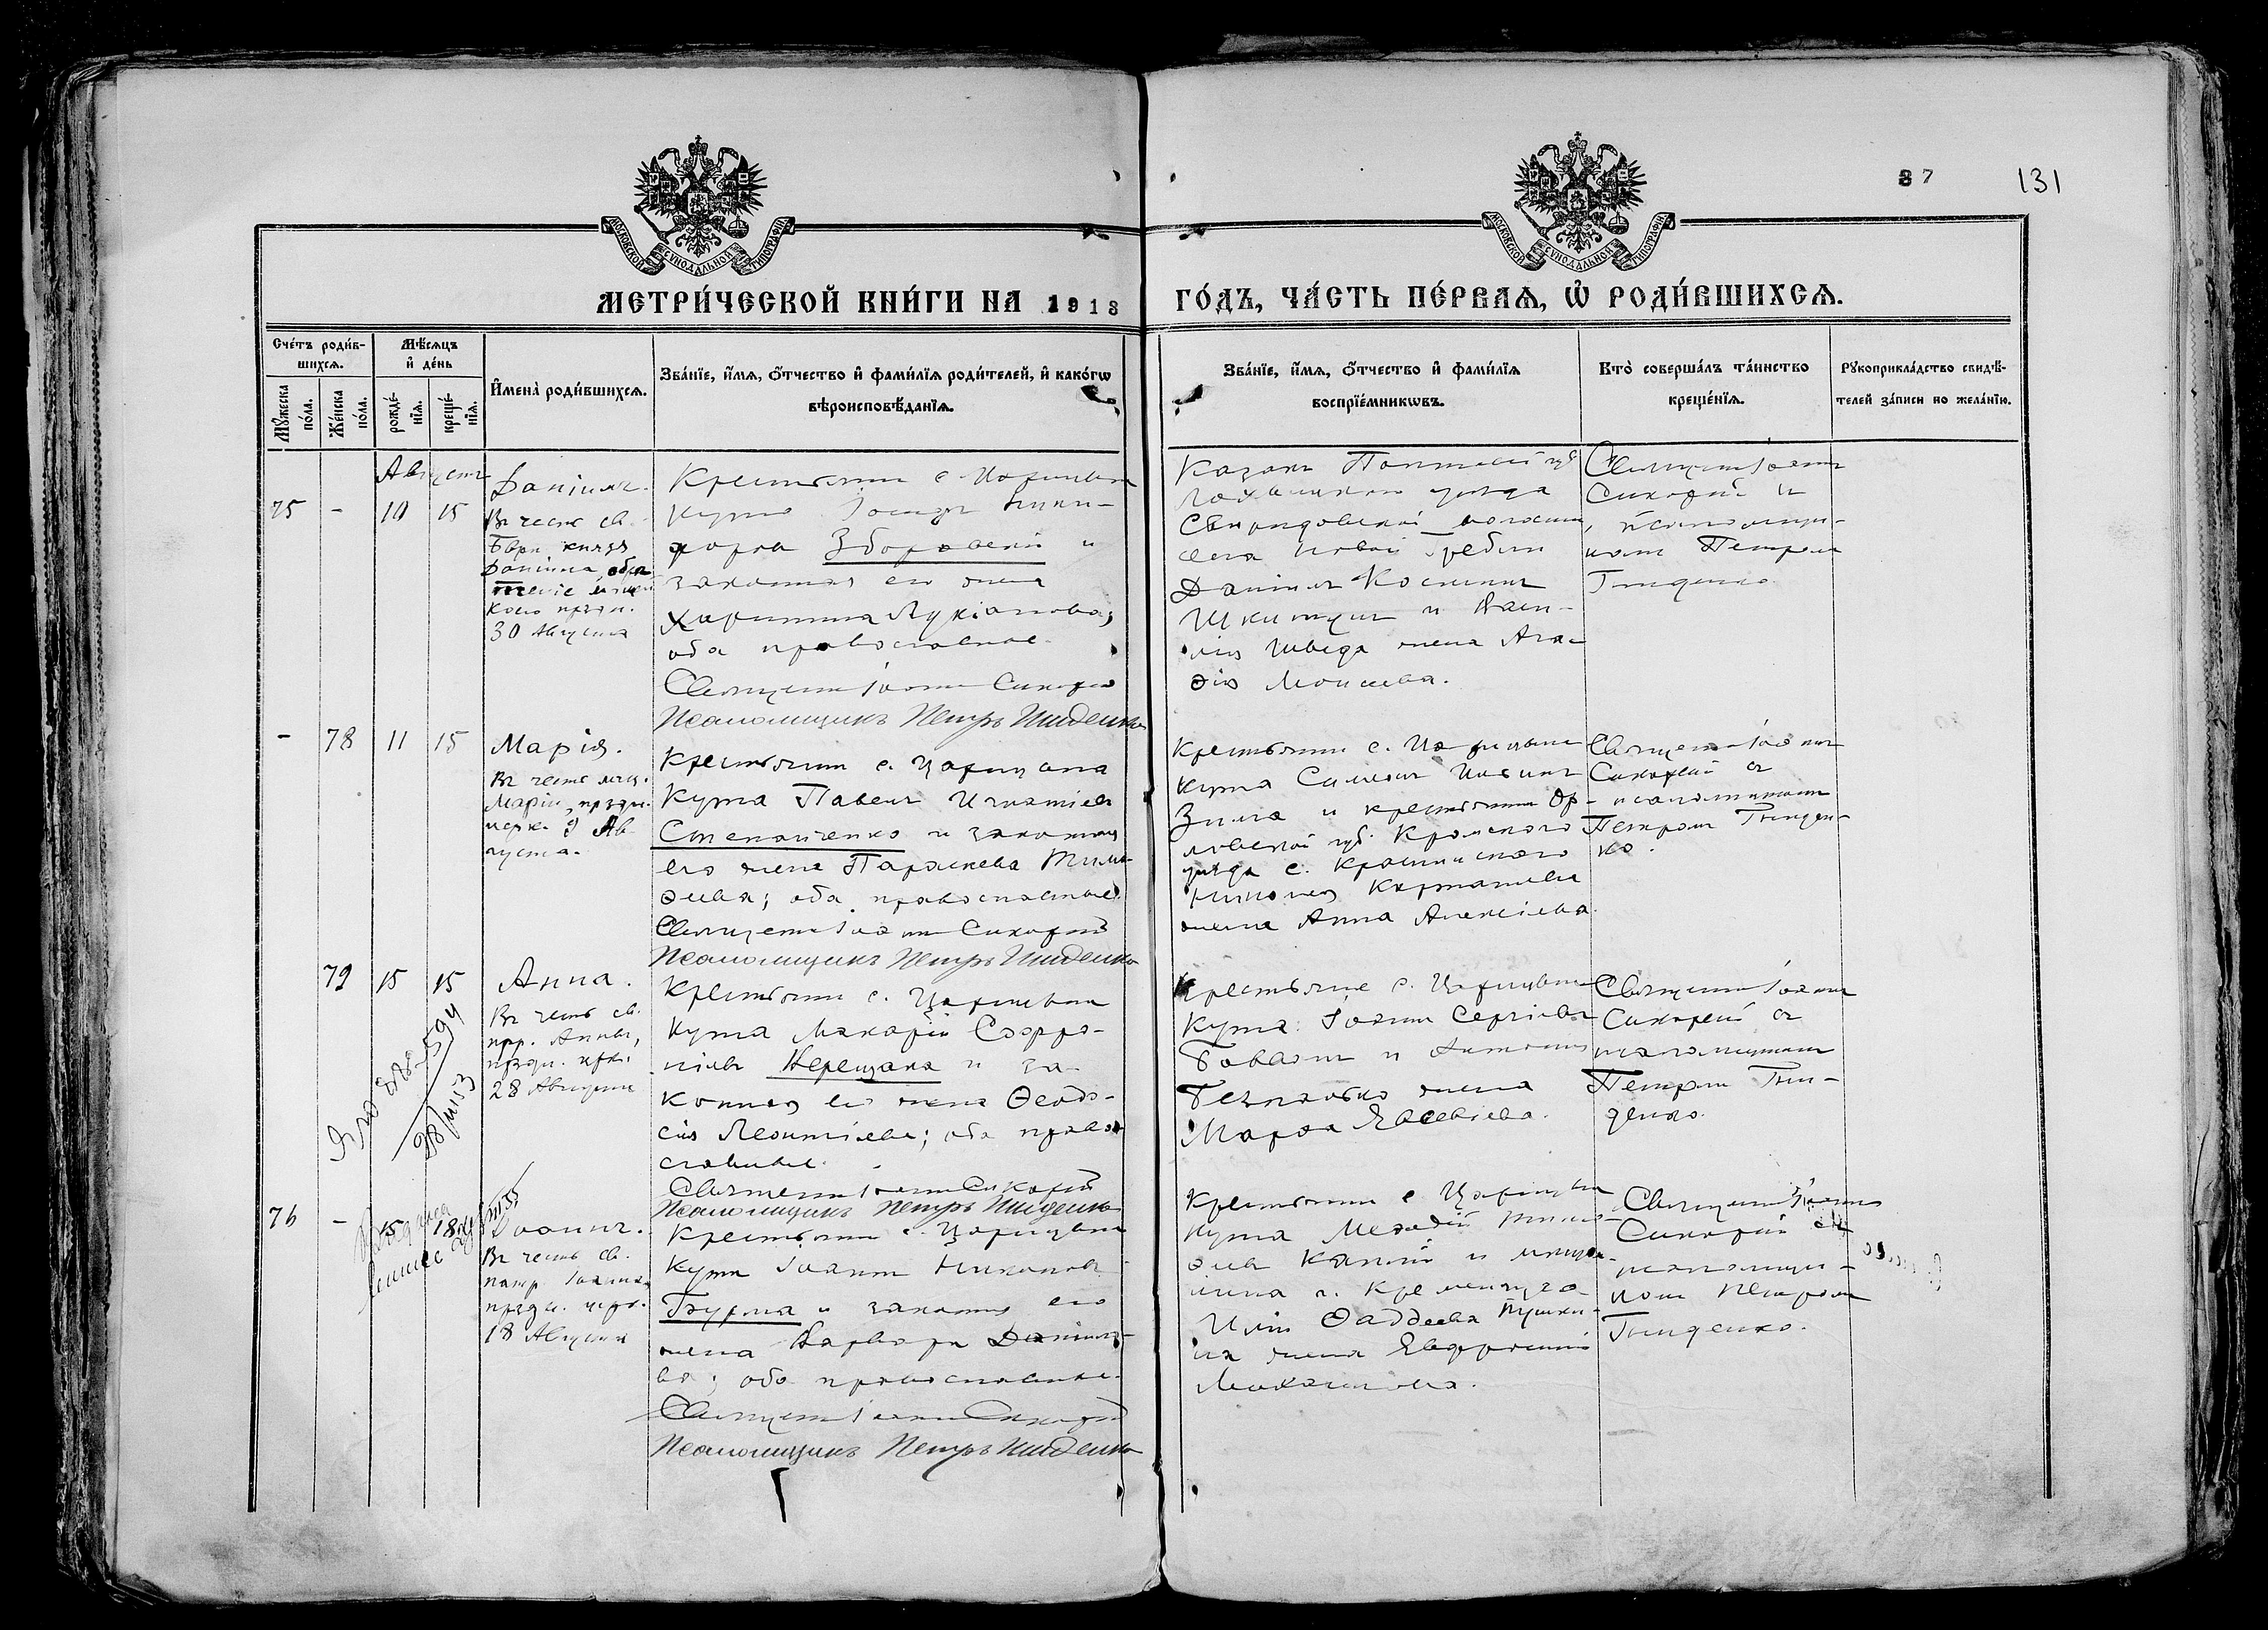 87 131
МОСКОВСКОЙ СѴНОДАЛЬНОЙ ТИПОГРАФІИ
МОСКОВСКОЙ СѴНОДАЛЬНОЙ ТИПОГРАФІИ
МЕТРИ́ЧЕСКОЙ КНИ́ГИ НА 1913 ГО́ДЪ, ЧА́СТЬ ПЕ́РВАѦ, Ѡ҆ РОДИ́ВШИХСѦ.
Сче́тъ роди́в-
шихсѧ.
Мꙋ́жеска по́ла.
Же́нска по́ла.
Мѣ́сѧцъ
и҆ де́нь
рожде́-
нїѧ.
креще́-
нїѧ.
И҆мена̀ роди́вшихсѧ.
Зва́нїе, и҆́мѧ, ѻ҆́тчество и҆ фами́лїѧ роди́телей, и҆ како́гѡ
вѣроисповѣ́данїѧ.
Зва́нїе, и҆́мѧ, ѻ҆́тчество и҆ фами́лїѧ
воспрїе́мникѡвъ.
Кто̀ соверша́лъ та́инство
креще́нїѧ.
Рꙋкоприкла́дство свидѣ́-
телей за́писи по жела́нїю.
Августъ
75 - 10 15
Даніилъ.
Въ честь св.
Блгв. князя
Даніила, обрѣ
теніе мощей
коего праздн.
30 Августа
Крестьянинъ с. Царицына
Кута Іосифъ Ники-
форовъ Зборовскій и
законная его жена
Харитина Лукіанова;
оба православные.
Священ. Іоаннъ Сикорскій
Псаломщикъ Петръ Гниденко
Казакъ Полтавской губ.
Лохвицкаго уѣзда
Свиридовской волости,
села Новой Гребли
Даніилъ Косминъ
Шкитунъ и
Швеца жена Ага-
ѳія Моисеева.
Священ. Іоаннъ
Сикорскій и
псаломщи-
комъ Петромъ
Гниденко
- 78 11 15
Марія.
Въ честь мчц.
Маріи, праздн.
церк. 9 Ав-
густа.
Крестьянинъ с. Царицына
Кута Павелъ Игнатіевъ
Степанченко и законная
его жена Параскева Тимо-
ѳеева; оба православные.
Священ. Іоаннъ Сикорскій
Псаломщикъ Петръ Гниденко
Крестьянинъ с. Царицына
Кута Симеонъ
Зима и крестьянина Ор-
ловской губ. Кромскаго
уѣзда с.
Николая
жена Анна Алексіева.
Священ. Іоаннъ
Сикорскій съ
псаломщикомъ
Петромъ Гниден-
ко.
79 15 15
Анна.
Въ честь св.
прр. Анны,
праздн. црк.
28 Августа
Крестьянинъ с. Царицына
Кута Макарій Софро-
ніевъ Верещака и за-
конная его жена Ѳеодо-
сія Леонтіева; оба право-
славные.
Священ. Іоаннъ Сикорскій
Псаломщикъ Петръ Гниденко
Крестьяне с. Царицына
Кута: Іоаннъ Сергіевъ
и Антонія
жена
Марѳа Евсевіева.
Священ. Іоаннъ
Сикорскій съ
псаломщикомъ
Петромъ Гни-
денко.
76 - 15 18
Іоаннъ.
Въ честь св.
патр. Іоанна,
праздн. церк.
18 Августа
Крестьянинъ с. Царицына
Кута Іоаннъ Никоновъ
Бурма и законная его
жена Варвара Даніило-
ва; оба православные.
Священ. Іоаннъ Сикорскій
Псаломщикъ Петръ Гниденко
Крестьянинъ с. Царицына
Кута Меѳодій Тимо-
ѳеевъ и мѣща-
нина г. Кременчуга
Иліи Ѳаддеева Пушки-
на жена Евфросинія
Священ. Іоаннъ
Сикорскій съ
псаломщи-
комъ Петромъ
Гниденко.